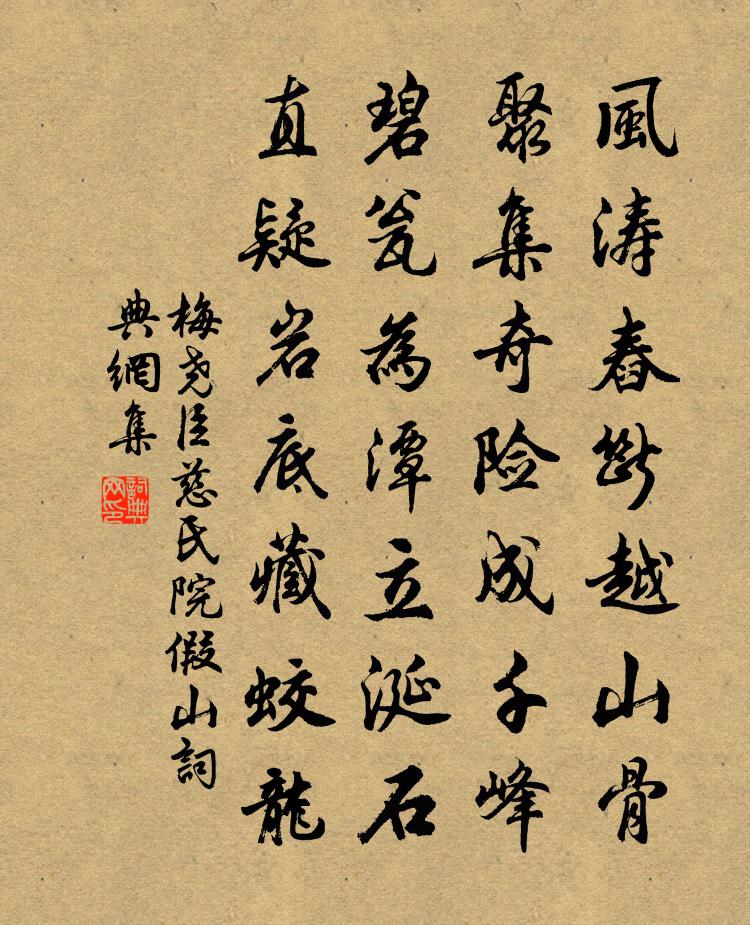 風涛舂斷越山骨
聚集奇险成千峰
碧瓮為潭立涎石
直疑岩底藏蛟龍
梅尧臣慈氏院假山詞
典網集
詞典网印